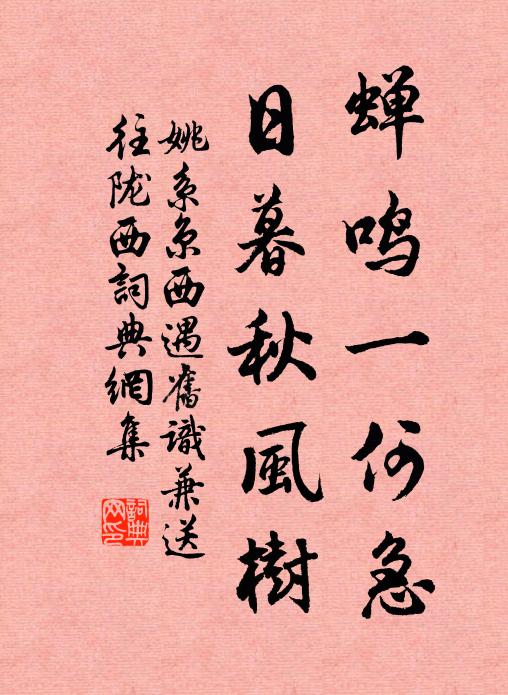 蝉鸣一何急
日暮秋風樹
姚系京西遇舊識兼送
往陇西詞典網集
詞典
网印